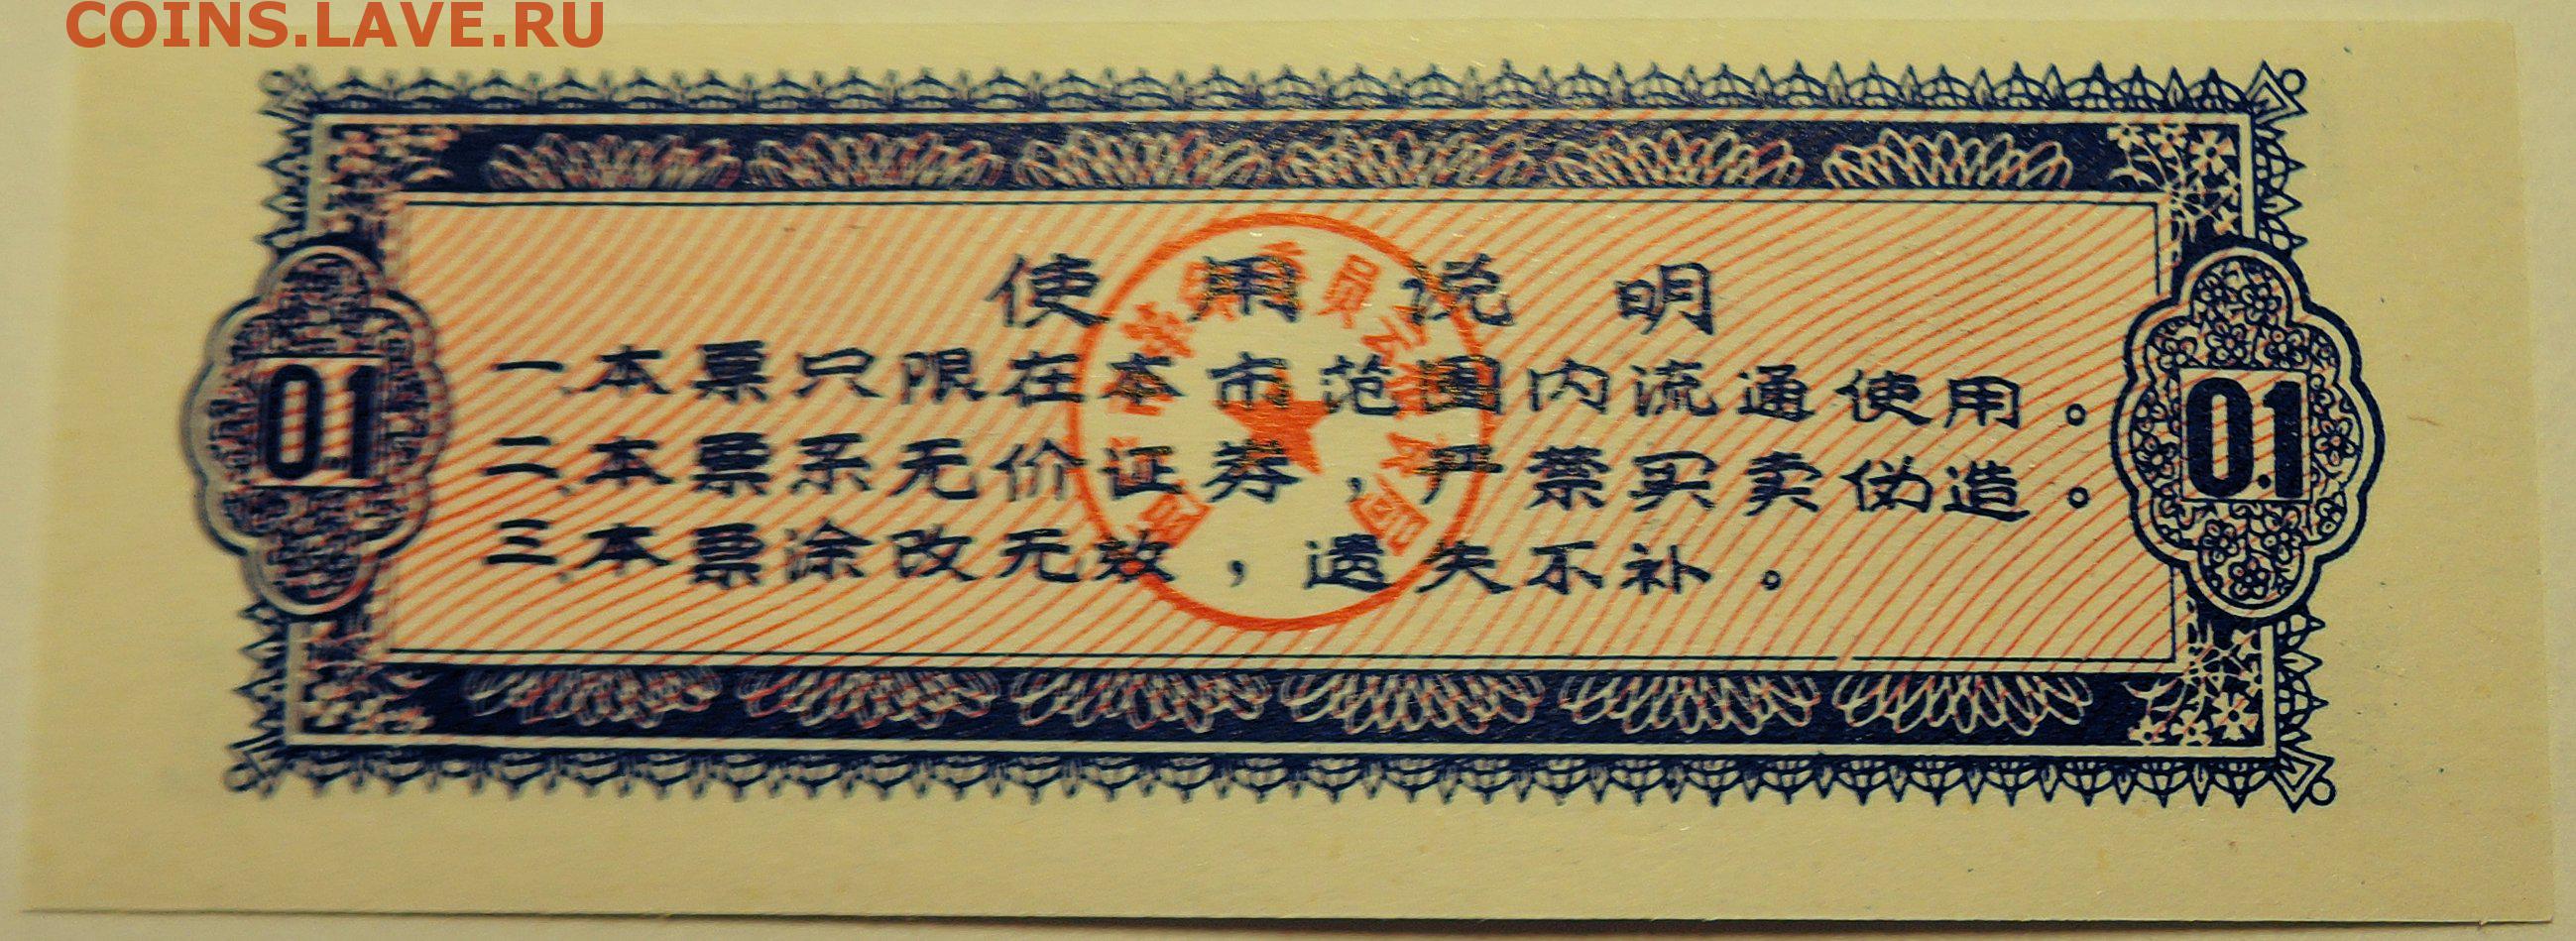 COINS.LAVE.RU
使用说明
一、本票只限在本市范围内流通使用。
二、本票系无价证券，严禁买卖伪造。
三、本票涂改无效，遗失不补。
0.1
0.1